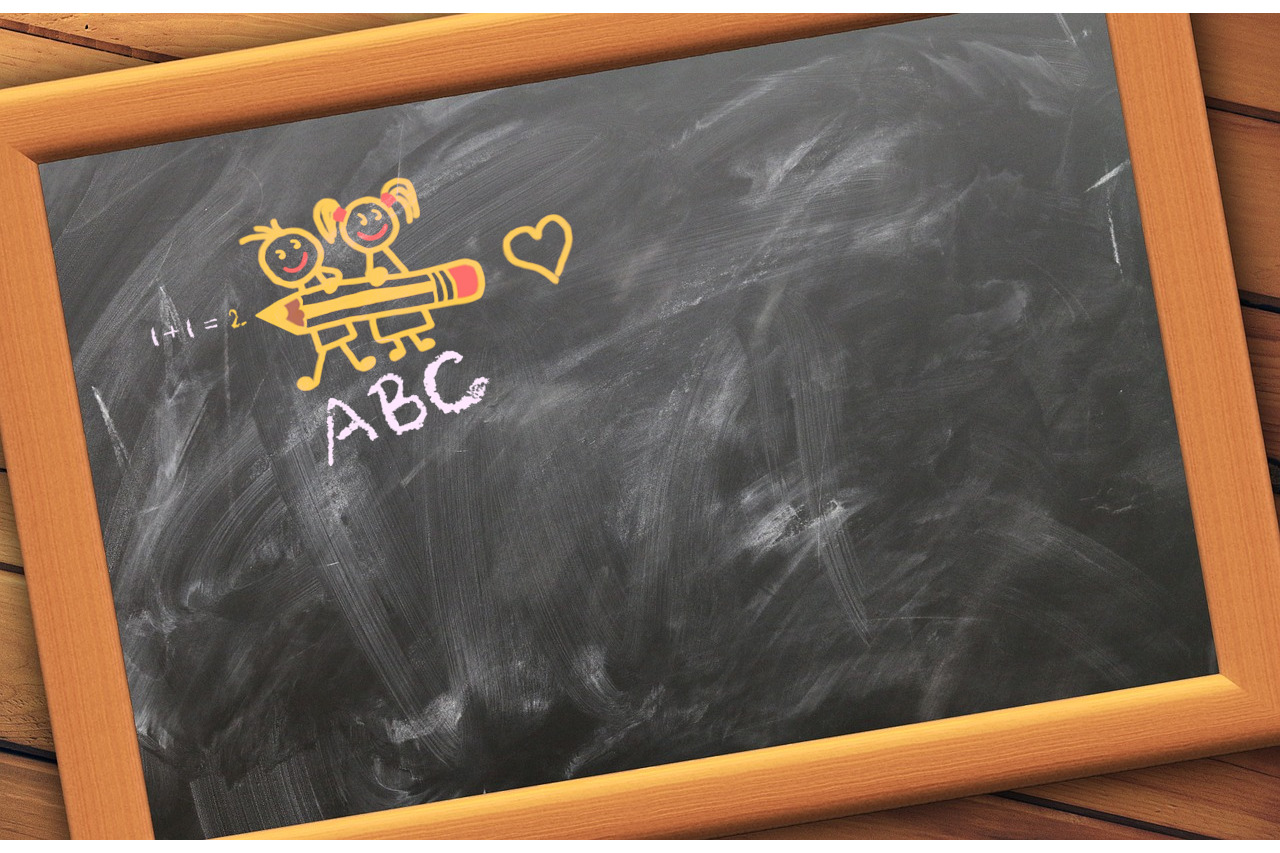 1+1=2.
ABC